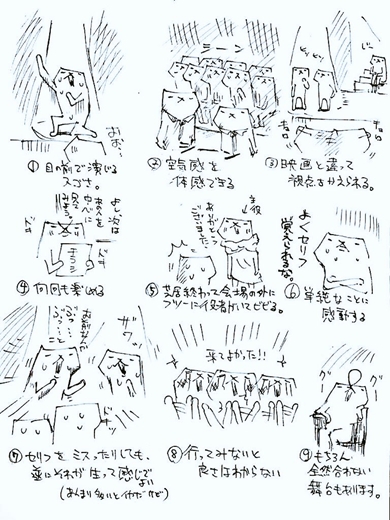 おお、
①目の前で演じる
スゴさ。
シーン
②空気感を
体感できる
ヒソヒソ
じー
キョロ
キョロ
③映画と違って
視点をかえられる。
よし次は
あの人を
中心に
見て
みよう。
ドキ
ドキ
チラシ
④何回も楽しめる
ありがとう
ございました
主役
⑤芝居終わって会場の外に
フツーに役者がいてビビる。
よくセリフ
覚えられるな。
⑥単純なことに
感動する
お前なんか
ぶっ…
ぶっ…こと
ザワッ
⑦セリフをミスったりしても、
逆にそれが生って感じで
よい
(あんまり多いとイヤだけど)
来てよかった!!
⑧行ってみないと
良さはわからない
グー
⑨もちろん
全然合わない
舞台もあります。